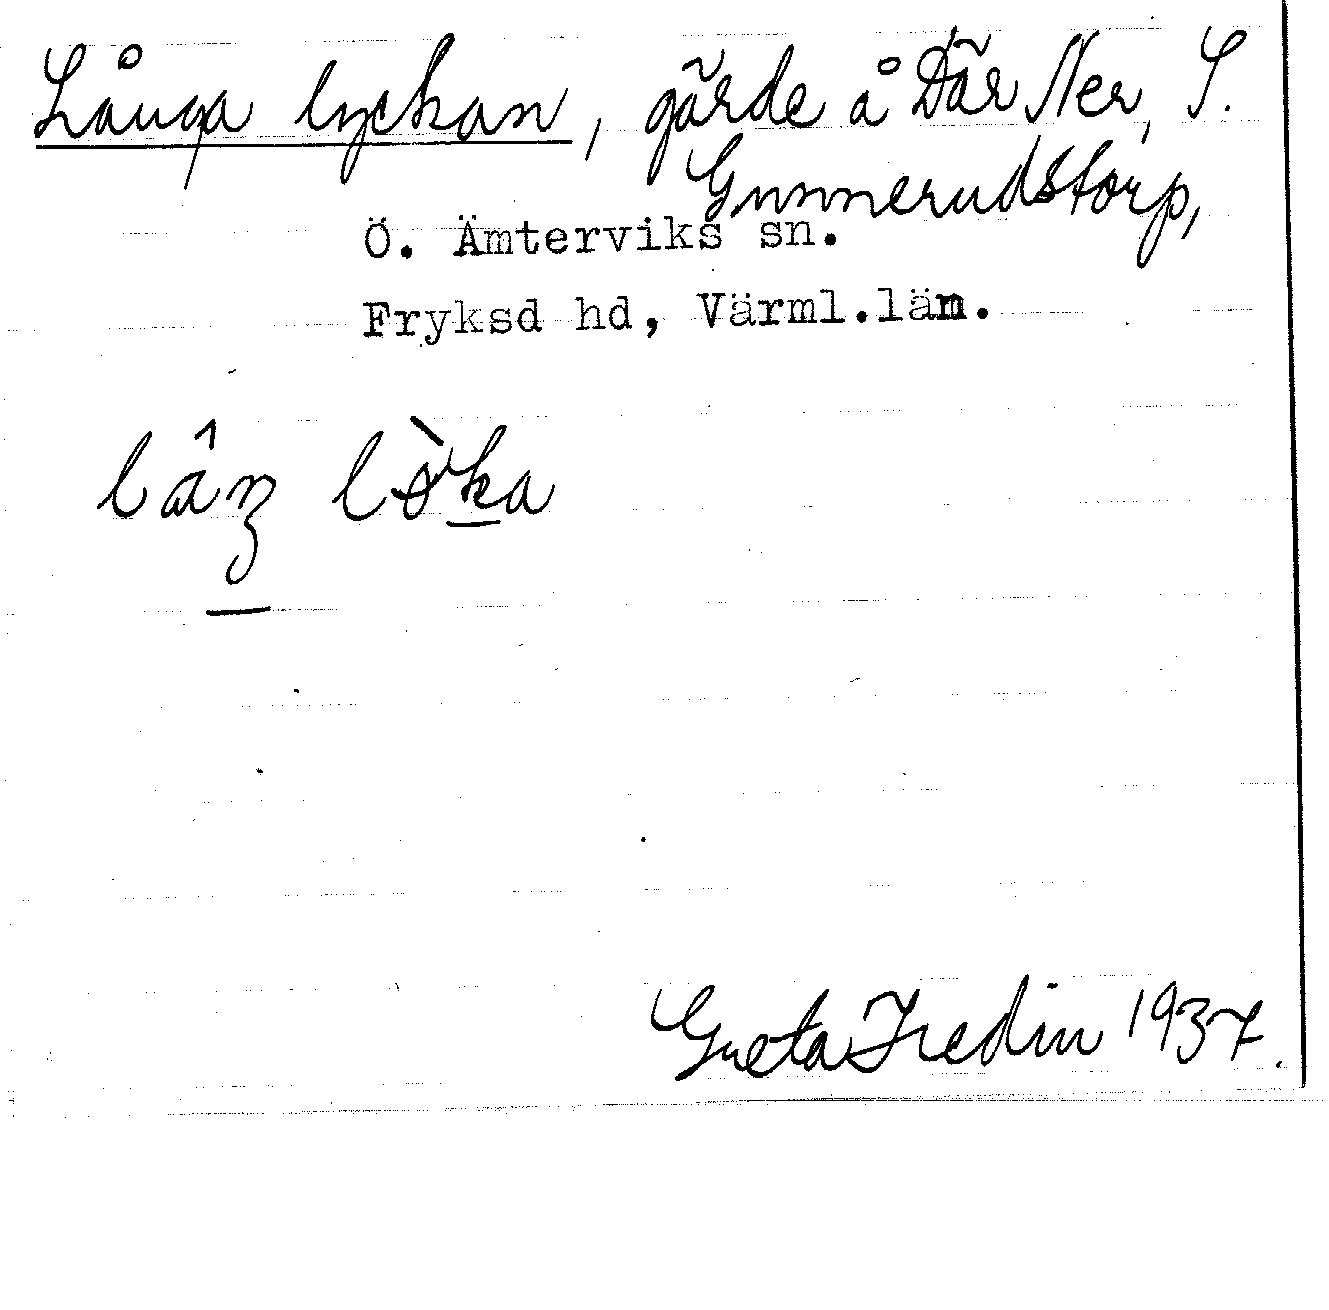 Långa lyckan, gärde å Där Ner, S.
Gunnerudstorp,
Ö. Ämterviks sn.
Fryksd hd, Värml.län.
Greta Fredin 1937.